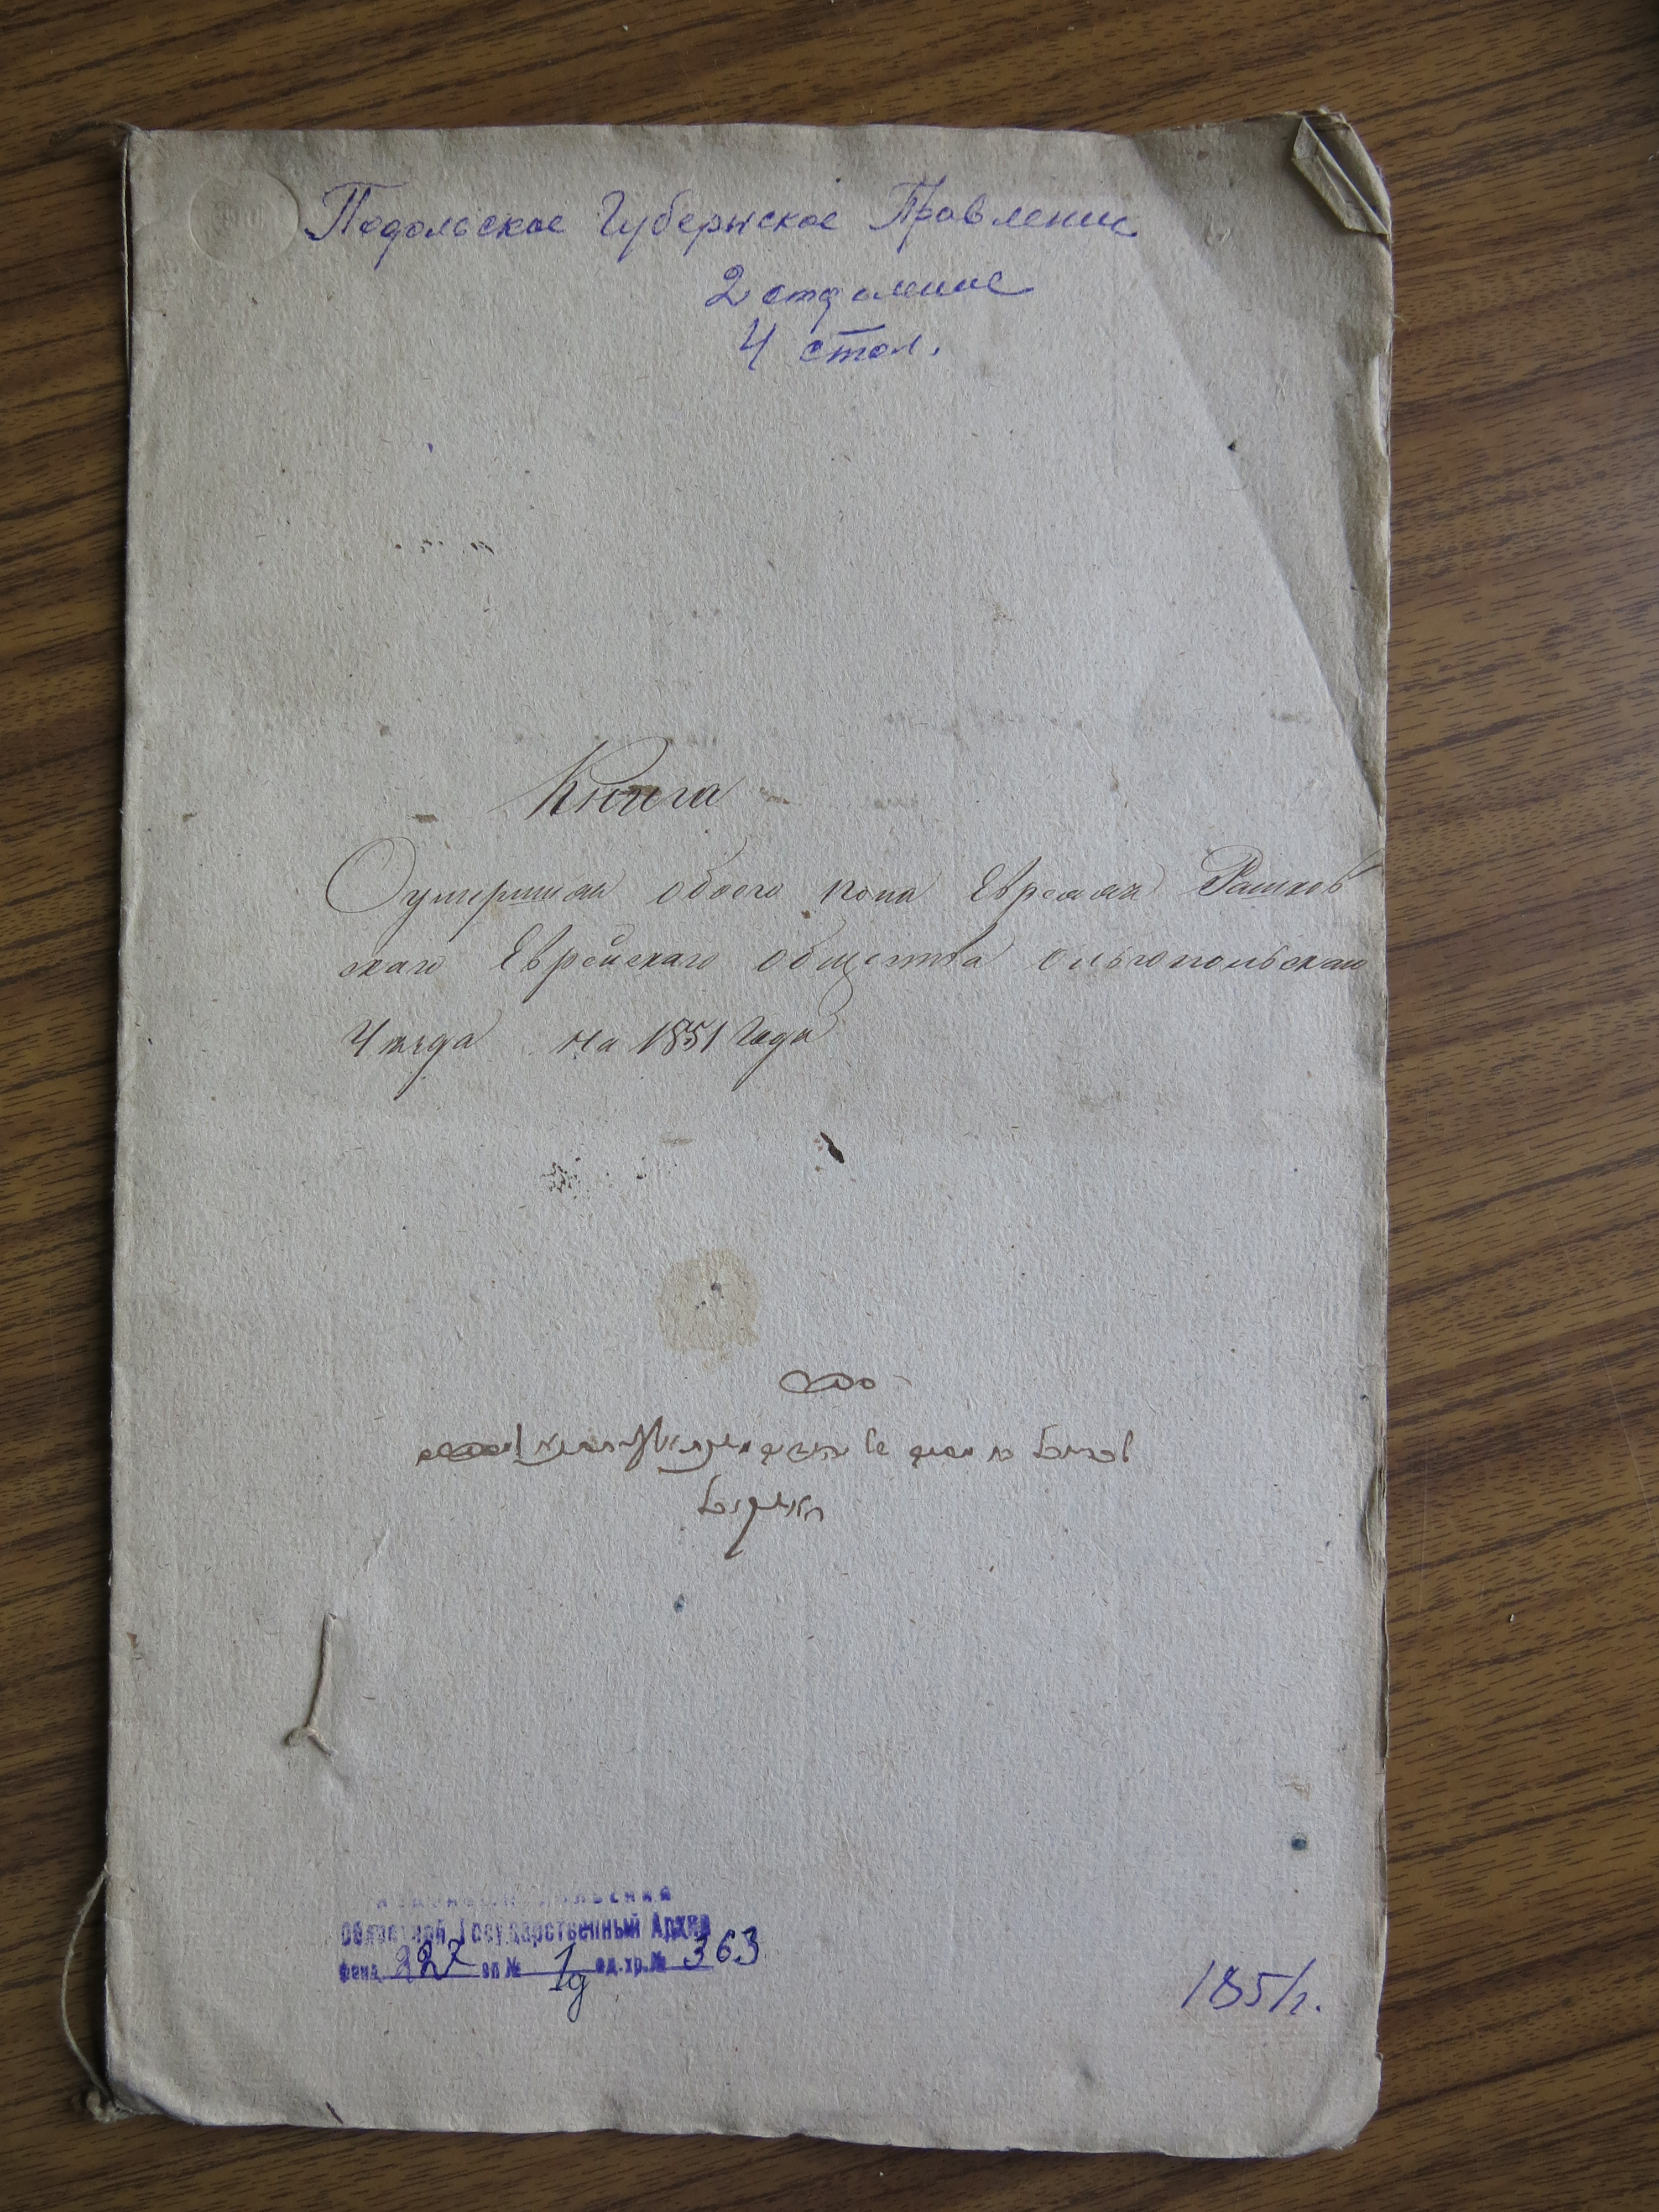 Подольское Губернское Правление
2 отделение
4 стол.
Книга
О умерших обоего пола Евреях Рашков
скаго Еврейскаго общества Ольгопольскаго
Уезда на 1851 Года
Областной Государственный Архив
фонд 227 оп № 1д ед. хр. № 363
1851 г.